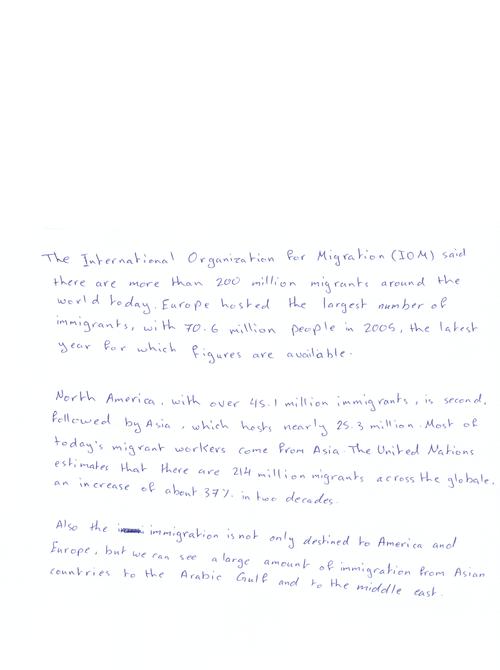 The International Organization for Migration (IOM) said
there are more than 200 million migrants around the
world today. Europe hosted the largest number of
immigrants, with 70.6 million people in 2005, the latest
year for which figures are available.
North America, with over 45.1 million immigrants, is second,
followed by Asia, which hosts nearly 25.3 million. Most of
today's migrant workers come from Asia. The United Nations
estimates that there are 214 million migrants across the globale,
an increase of about 37% in two decades.
Also the immigration is not only destined to America and
Europe, but we can see a large amount of immigration from Asian
countries to the Arabic Gulf and to the middle east.